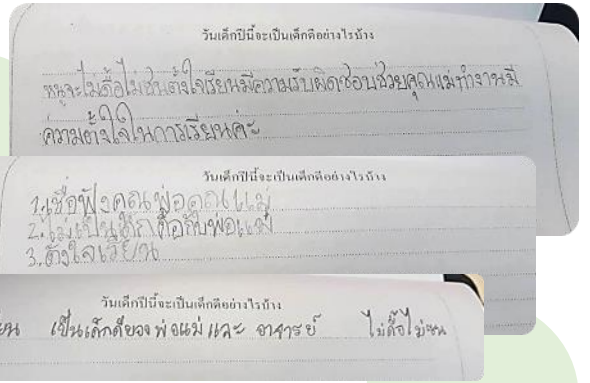 วันเด็กปีนี้จะเป็นเด็กดีอย่างไรบ้าง
หนูจะไม่ดื้อไม่ซนตั้งใจเรียนมีความรับผิดชอบช่วยคุณแม่ทำงานมี
ความตั้งใจในการเรียนค่ะ
วันเด็กปีนี้จะเป็นเด็กดีอย่างไรบ้าง
1.เชื่อฟังคุณพ่อคุณแม่
2.ไม่เป็นเด็กดื้อกับพ่อแม่
3.ตั้งใจเรียน
วันเด็กปีนี้จะเป็นเด็กดีอย่างไรบ้าง
เป็นเด็กดีของพ่อแม่และ อาจารย์ ไม่ดื้อไม่ซน